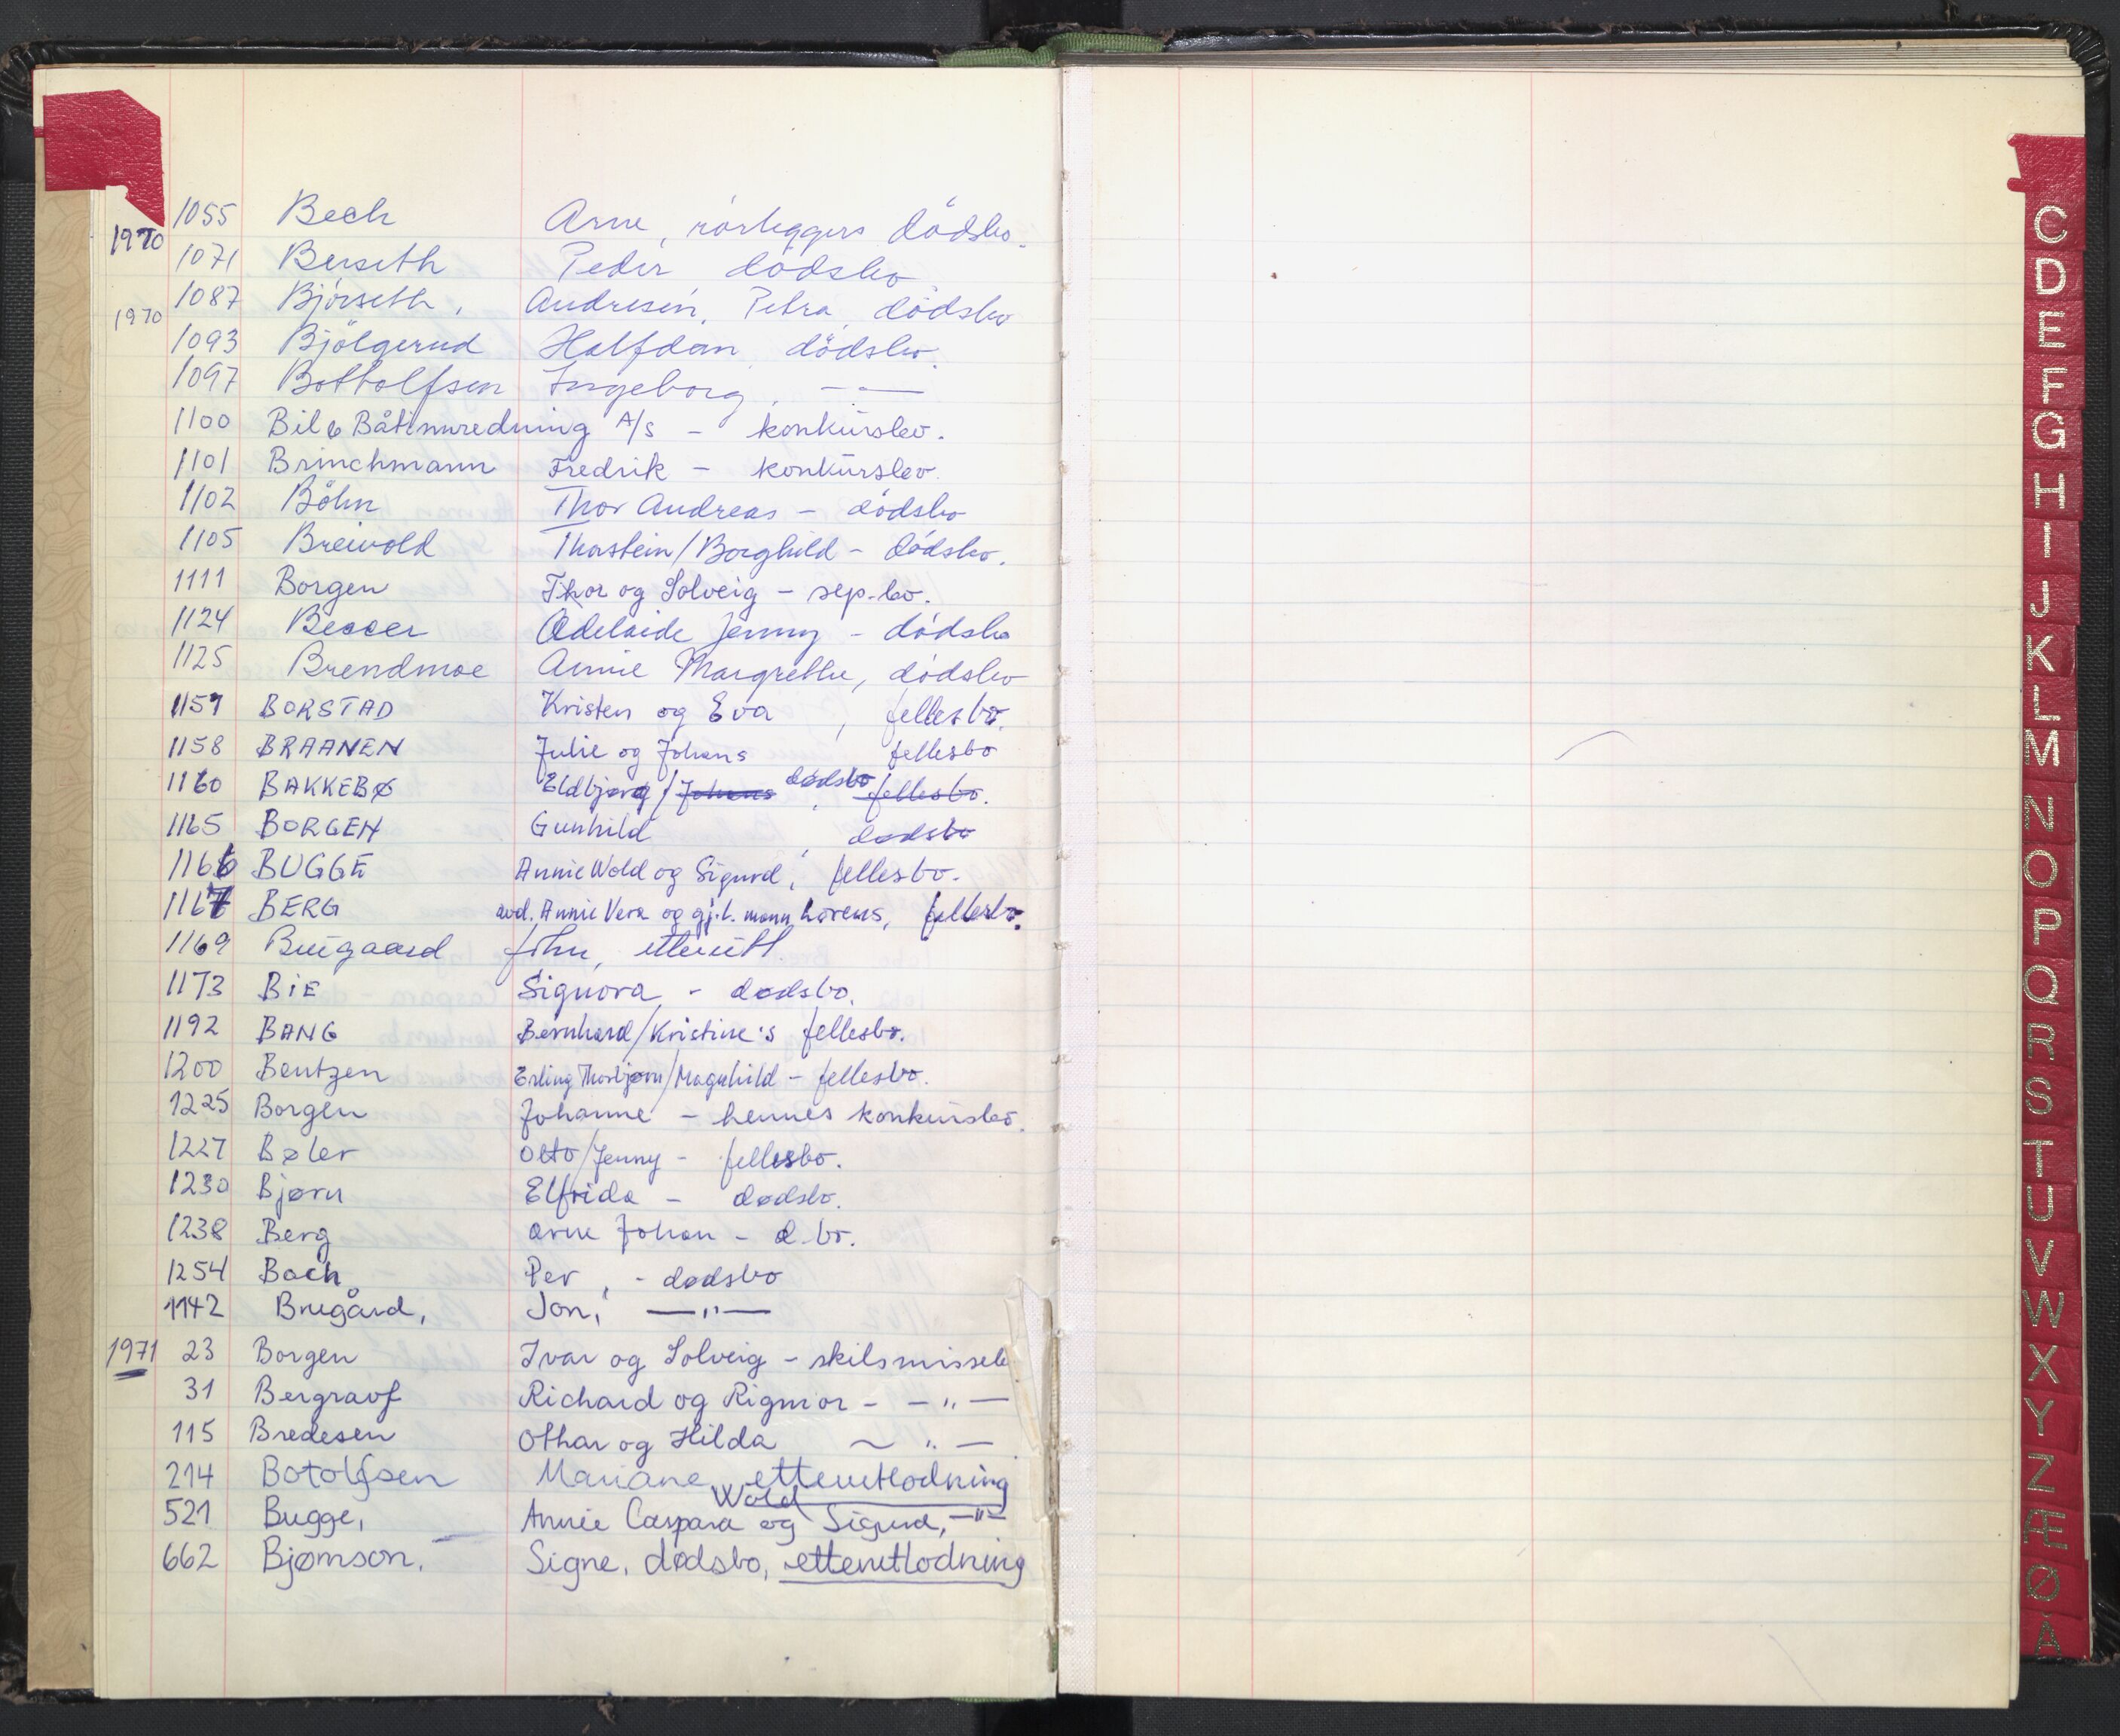 1055 Bech Arne, rörleggers dödsbo.
1970
1071 Berseth Peder dödsbo
1087 Björseth, Andresen, Petra, dödsbo
1970
1093 Bjölgerud Halfdan, dödsbo.
1097 Bottolfsen Ingeborg, — " —
1100 Bil & Båtinnredning A/S - konkursbo.
1101 Brinchmann Fredrik - konkursbo.
1102 Böhn Thor Andreas - dödsbo
1105 Breivold Thorstein/Borghild - dödsbo.
1111 Borgen Thor og Solveig - sep.bo.
1124 Adelaide Jenny - dödsbo
1125 Brendmoe Annie Margrethe, dödsbo
1157 BORSTAD Kristen og Eva, fellesbo.
1158 BRAANEN Julie og Johans fellesbo
1160 BAKKEBØ Eldbjørg / Johans dødsbo, fellesbo.
1165 BORGEN Gunhild, dødsbo
1166 BUGGE Annie Wold og Sigurd, fellesbo.
1167 BERG avd. Annie Vera og gj.l. mann Lorens, fellesbo.
1169 Bregaard John, etterutl.
1173 BIE Signora - dødsbo.
1192 BANG Bernhard/Kristine's fellesbo.
1200 Bentzen Erling Thorbjørn/Magnhild - fellesbo.
1225 Borgen Johanne - hennes konkursbo.
1227 Bøler Otto/Jenny - fellesbo.
1230 Bjørn Elfrida - dødsbo.
1238 Berg Arne Johan - d.bo.
1254 Bach Per, - dødsbo
1142 Bregård, Jon, — " —
1971 23 Borgen Ivar og Solveig - skilsmisseb
31 Bergravf Richard og Rigmor - — " —
115 Bredesen Othar og Hilda — " —
214 Botolfsen Mariane, etterutlodning
Wold
521 Bugge, Annie Caspara og Sigurd, — " —
662 Bjørnson, Signe, dødsbo, etterutlodning
C
D
E
F
G
H
I
J
K
L
M
N
O
P
Q
R
S
T
U
V
W
X
Y
Z
Æ
Ø
Å